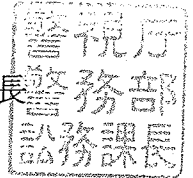 警視庁
長警務部
訟務課長